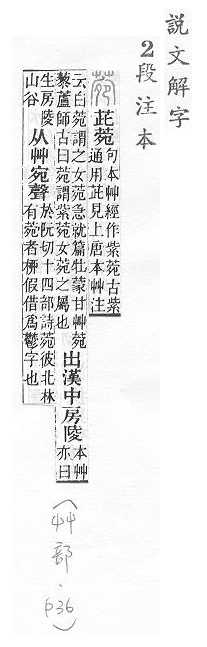 說文解字
2段注本
菀
茈菀
句本艸經作紫菀古紫
通用茈見上唐本艸注
云白菀謂之女菀急就篇牡蒙甘艸菀
藜蘆師古曰菀謂紫菀女菀之屬也
出漢中房陵
本艸
亦曰
生房陵
山谷
从艸宛聲
於阮切十四部詩菀彼北林
有菀者桺假借爲鬱字也
(艸部.p36)